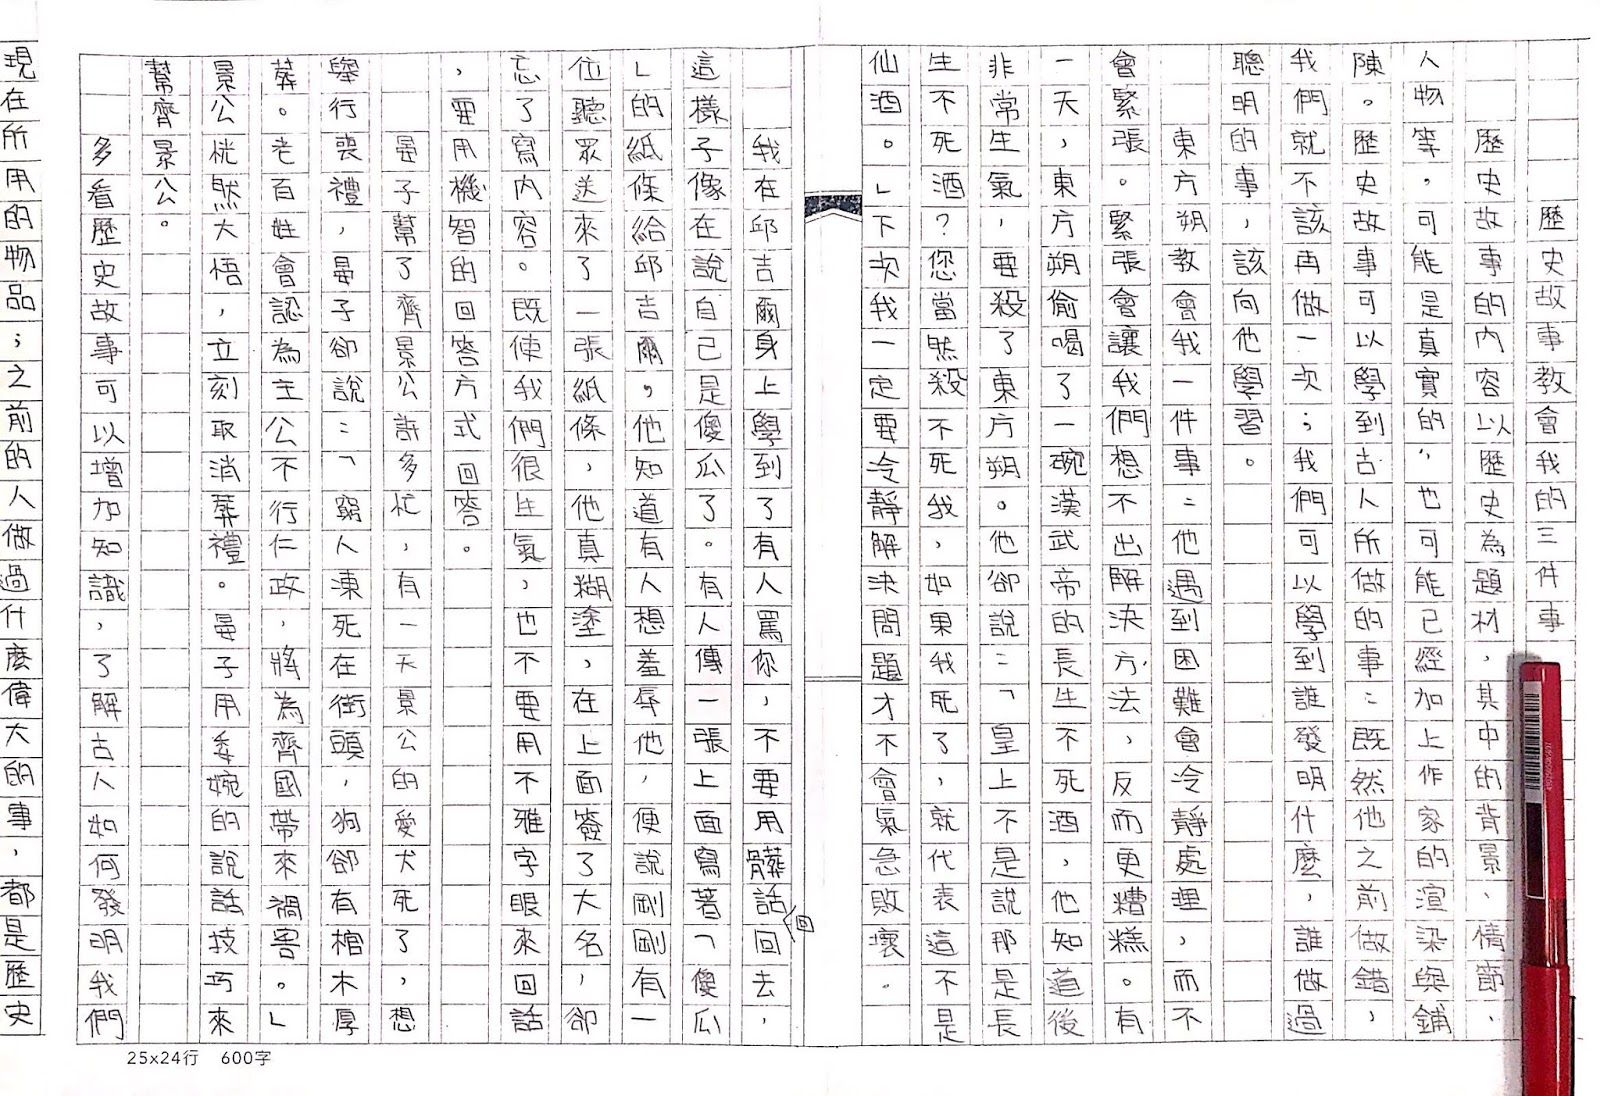 歷史故事教會我的三件事
歷史故事的內容以歷史為題材，其中的背景、情節、
人物等，可能是真實的，也可能已經加上作家的渲染與鋪
陳。歷史故事可以學到古人所做的事：既然他之前做錯，
我們就不該再做一次；我們可以學到誰發明什麼，誰做過
聰明的事，該向他學習。
東方朔教會我一件事：他遇到困難會冷靜處理，而不
會緊張。緊張會讓我們想不出解決方法，反而更糟糕。有
一天，東方朔偷喝了一碗漢武帝的長生不死酒，他知道後
非常生氣，要殺了東方朔。他卻說：「皇上不是說那是長
生不死酒？您當然殺不死我，如果我死了，就代表這不是
仙酒。」下次我一定要冷靜解決問題才不會氣急敗壞。
我在邱吉爾身上學到了有人罵你，不要用髒話回去，
回
這樣子像在說自己是傻瓜了。有人傳一張上面寫著「傻瓜
」的紙條給邱吉爾，他知道有人想羞辱他，便說剛剛有一
位聽眾送來了一張紙條，他真糊塗，在上面簽了大名，卻
忘了寫內容。既使我們很生氣，也不要用不雅字眼來回話
，要用機智的回答方式回答。
晏子幫了齊景公許多忙，有一天景公的愛犬死了，想
舉行喪禮，晏子卻說：「窮人凍死在街頭，狗卻有棺木厚
葬。老百姓會認為主公不行仁政，將為齊國帶來禍害。」
景公恍然大悟，立刻取消葬禮。晏子用委婉的說話技巧來
幫齊景公。
多看歷史故事可以增加知識，了解古人如何發明我們
現在所用的物品；之前的人做過什麼偉大的事，都是歷史
25x24行 600字